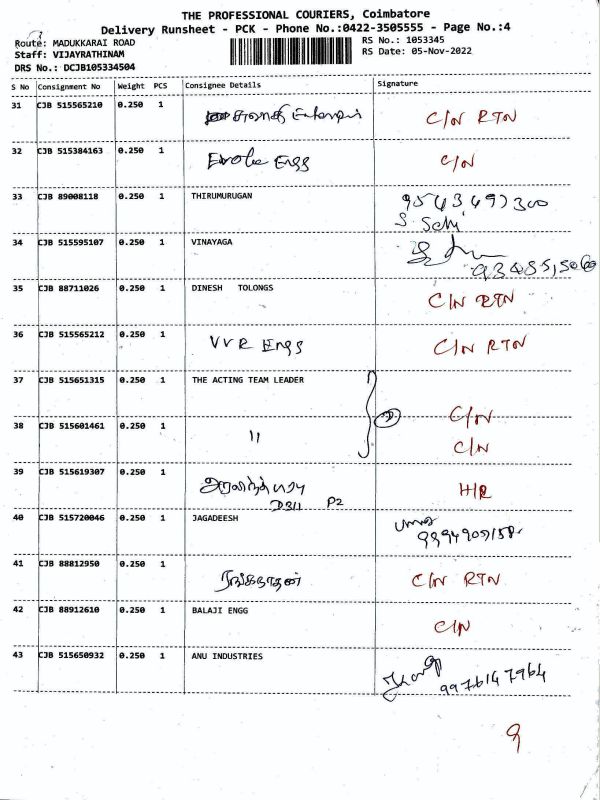 THE PROFESSIONAL COURIERS, Coimbatore
Delivery Runsheet - PCK - Phone No.:0422-3505555 - Page No.:4
Route: MADUKKARAI ROAD
RS No.: 1053345
Staff: VIJAYRATHINAM
RS Date: 05-Nov-2022
DRS No.: DCJB105334504
S No Consignment No Weight PCS Consignee Details Signature
31 CJB 515565210 0.250 1 C/N RTN
32 CJB 515384163 0.250 1 Engg C/N
33 CJB 89008118 0.250 1 THIRUMURUGAN
34 CJB 515595107 0.250 1 VINAYAGA
35 CJB 88711026 0.250 1 DINESH TOLONGS C/N RTN
36 CJB 515565212 0.250 1 VVR Engg C/N RTN
37 CJB 515651315 0.250 1 THE ACTING TEAM LEADER C/N
38 CJB 515601461 0.250 1 11 C/N
39 CJB 515619307 0.250 1 H/R
D311 P2
40 CJB 515720046 0.250 1 JAGADEESH
41 CJB 88812950 0.250 1 ரங்கநாதன் C/N RTN
42 CJB 88912610 0.250 1 BALAJI ENGG C/N
43 CJB 515650932 0.250 1 ANU INDUSTRIES
9976147964
9